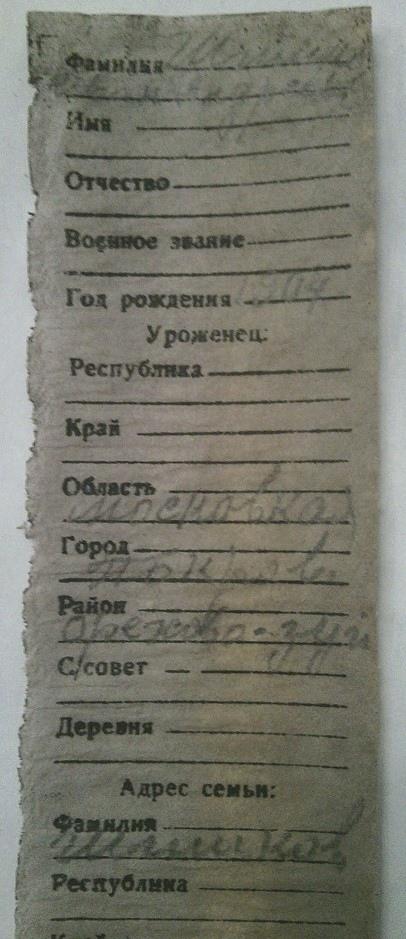 Фамилия
Имя
Отчество
Военное звание
Год рождения 1904
Уроженец:
Республика
Край
Область
московка
Город
покров
Район
орехово-зуй
С/совет
Деревня
Адрес семьи:
Фамилия
Республика